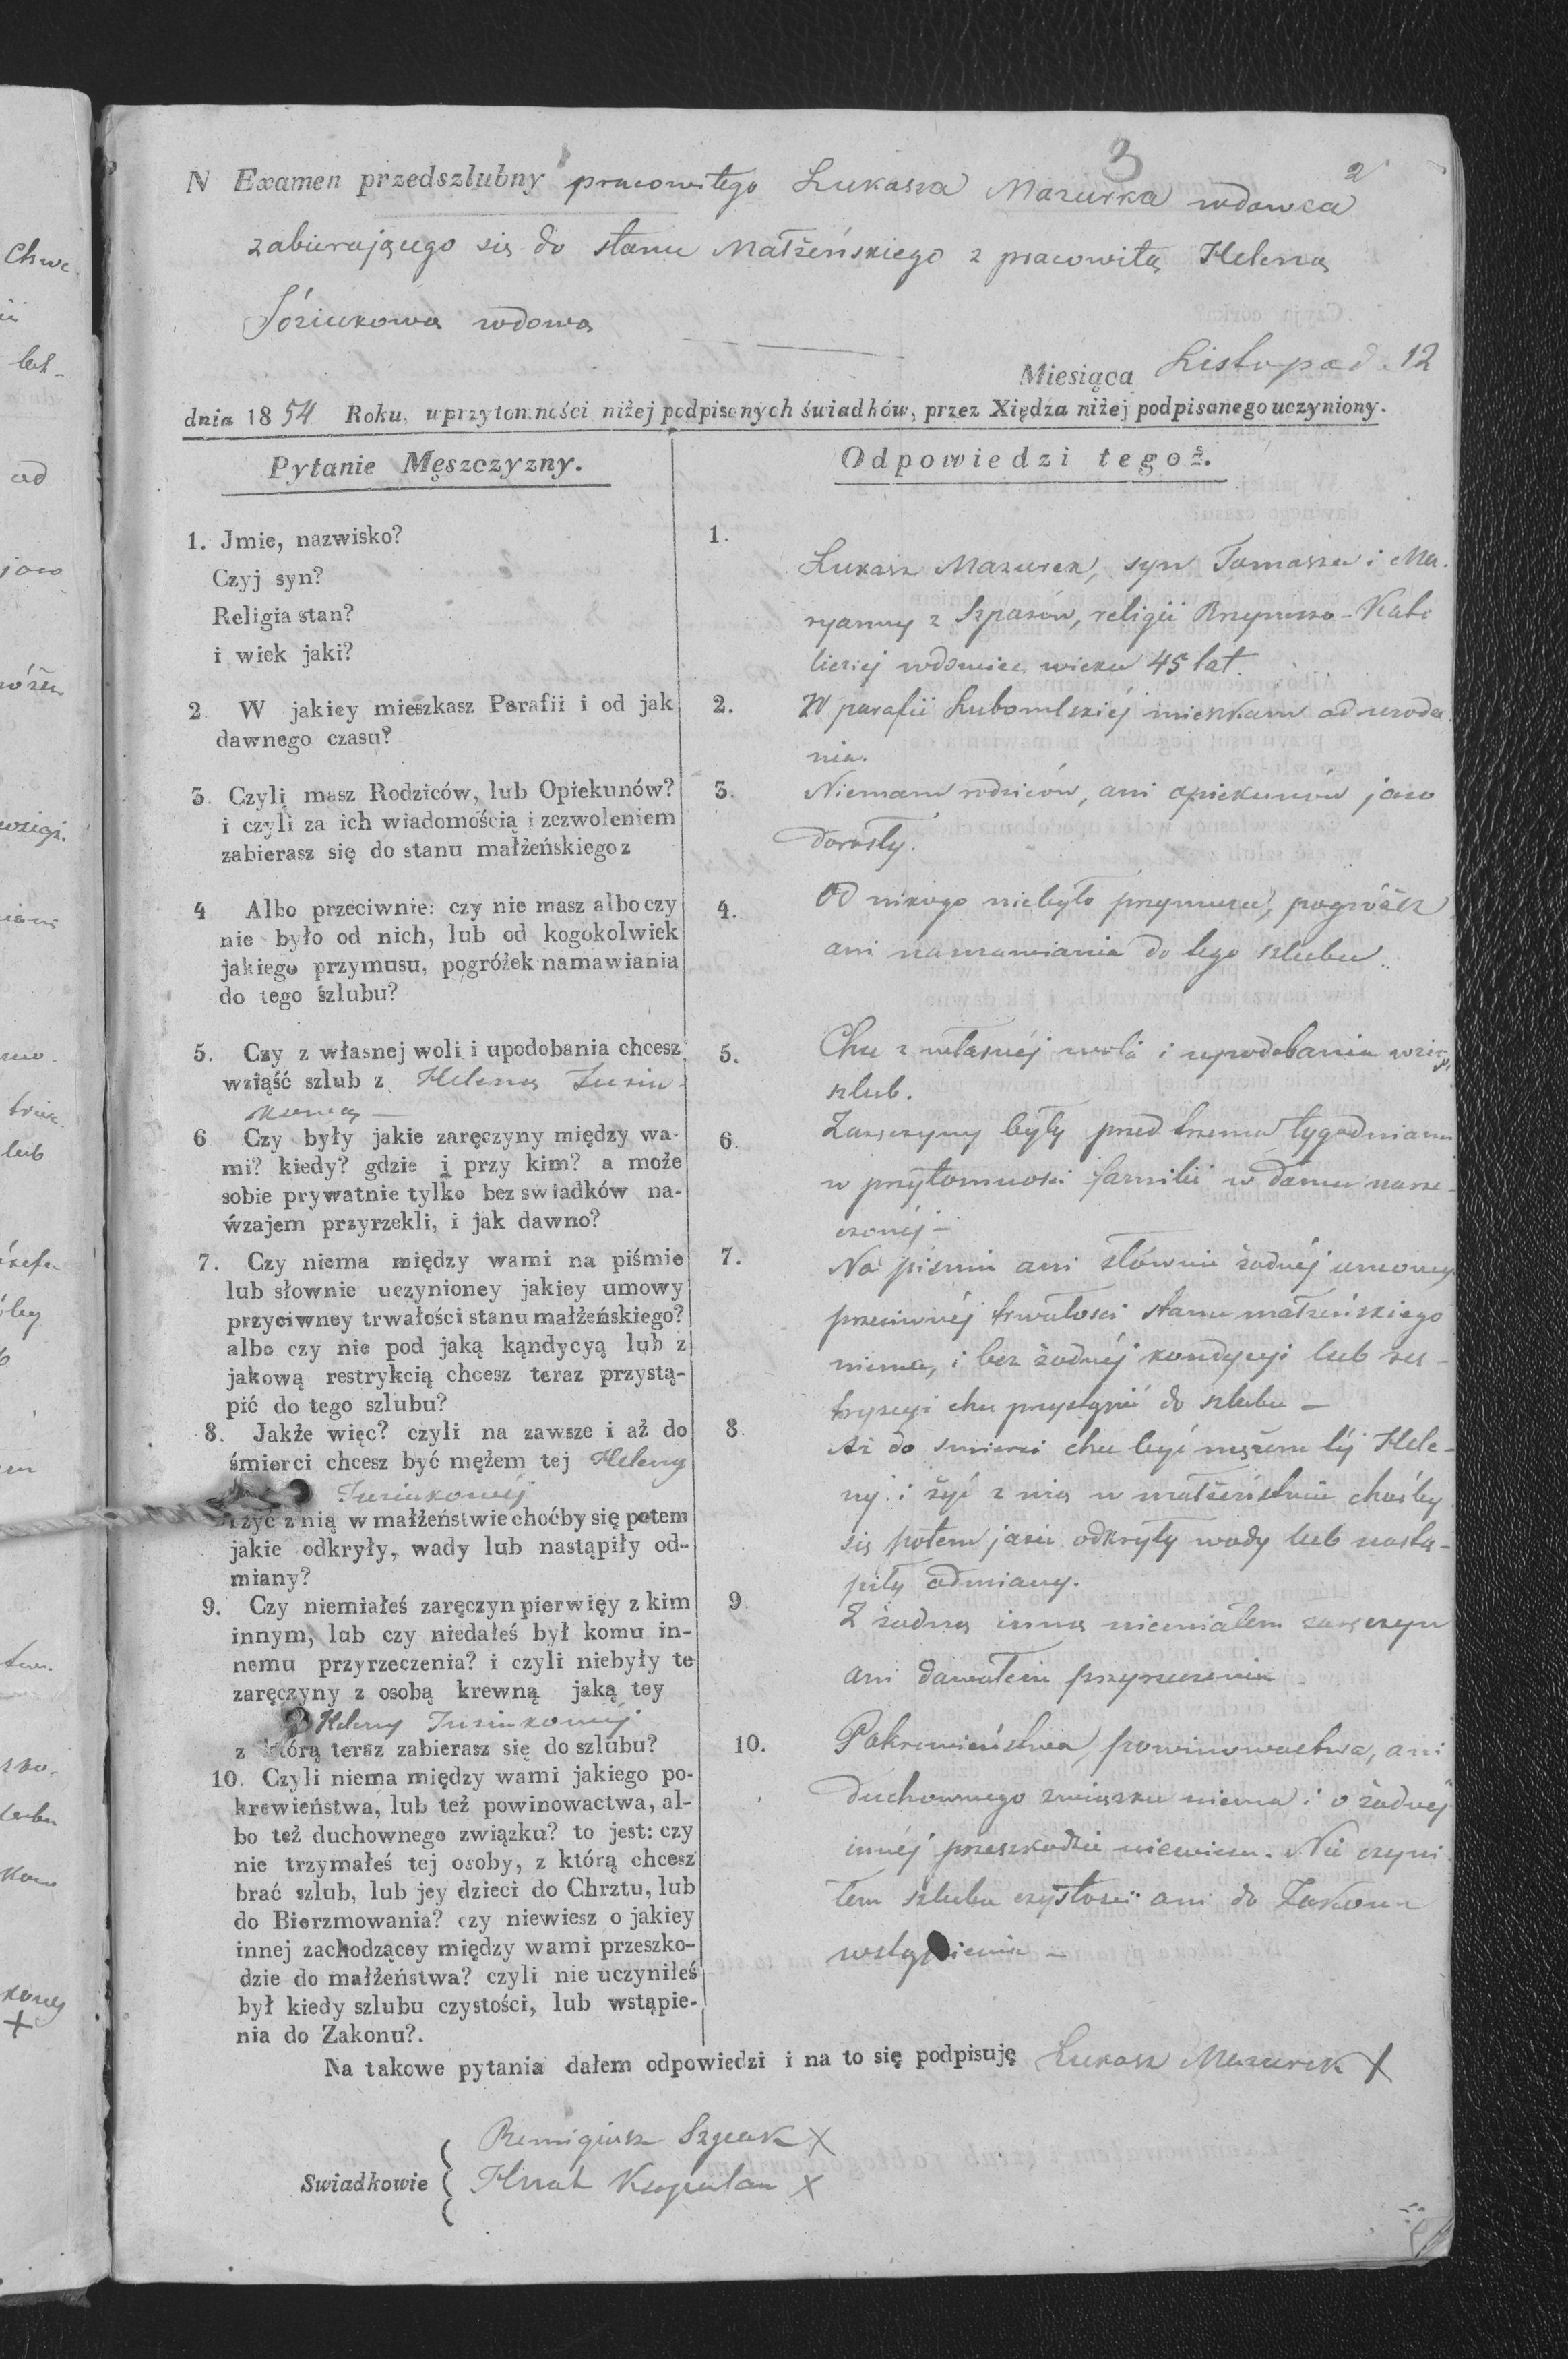 3
2
N Examen przedszlubny pracowitego Łukasza Mazurka wdowca
zabierającego się do stanu Małżeńskiego z pracowitą Heleną
wdową
Miesiąca Listopad. 12
dnia 1854 Roku, w przytomności niżej podpisanych świadków, przez Xiędza niżej podpisanego uczyniony.
Pytanie Męszczyzny.
Odpowiedzi tegoż.
1. Jmie, nazwisko?
Czyj syn?
Religia stan?
i wiek jaki?
1.
Łukasz Mazurek, syn Tomasza i Ma-
ryanny z Szpaków, religii Rzymsko-Kato
lickiej wdowiec wieku 45 lat.
2. W jakiey mieszkasz Parafii i od jak
dawnego czasu?
2. W parafii Lubomlskiéj mieszkam od urodze
nia.
3. Czyli masz Rodziców, lub Opiekunów?
i czyli za ich wiadomością i zezwoleniem
zabierasz się do stanu małżeńskiego z
3. Niemam rodziców, ani opiekunów jako
dorosły.
4 Albo przeciwnie: czy nie masz albo czy
nie było od nich, lub od kogokolwiek
jakiego przymusu, pogróżek namawiania
do tego szlubu?
4. Od nikogo niebyło przymusu, pogróżek
ani namawiania do tego szlubu
5. Czy z własnej woli i upodobania chcesz
wziąść szlub z Heleną Juziu-
kową —
5. Chcę z własnéj woli i upodobania wziąść
szlub.
6 Czy były jakie zaręczyny między wa-
mi? kiedy? gdzie i przy kim? a może
sobie prywatnie tylko bez swiadków na-
wzajem przyrzekli, i jak dawno?
6. Zaręczyny były przed trzema tygodniami
w przytomności familii w domu narze-
czonéj —
7. Czy niema między wami na piśmie
lub słownie uczynioney jakiey umowy
przyciwney trwałości stanu małżeńskiego?
albo czy nie pod jaką kąndycyą lub z
jakową restrykcią chcesz teraz przystą-
pić do tego szlubu?
7. Na piśmie ani słównie żadnéj umowy
przeciwnéj trwałości stanu małżeńskiego
niema, i bez żadnéj kondycyi lub res-
trykcyi chcę przystąpić do szlubu —
8. Jakże więc? czyli na zawsze i aż do
śmierci chcesz być mężem tej Heleny
Juziukowéj
i żyć z nią w małżeństwie choćby się potem
jakie odkryły, wady lub nastąpiły od-
miany?
8 Aż do śmierci chcę być mężem téj Hele-
ny i żyć z nią w małżeństwie choćby
się potem jakie odkryły wady lub nastą-
piły odmiany.
9. Czy niemiałeś zaręczyn pierwięy z kim
innym, lub czy niedałeś był komu in-
nemu przyrzeczenia? i czyli niebyły te
zaręczyny z osobą krewną jaką tey
Heleny Juziukowéj
z którą teraz zabierasz się do szlubu?
9. Z żadną inną niemiałem zaręczyn
ani dawałem przyrzeczenia
10. Czyli niema między wami jakiego po-
krewieństwa, lub też powinowactwa, al-
bo też duchownego związku? to jest: czy
nie trzymałeś tej osoby, z którą chcesz
brać szlub, lub jey dzieci do Chrztu, lub
do Bierzmowania? czy niewiesz o jakiey
innej zachodzącey między wami przeszko-
dzie do małżeństwa? czyli nie uczyniłeś
był kiedy szlubu czystości, lub wstąpie-
nia do Zakonu?.
10. Pokrewieństwa, powinowactwa, ani
duchownego związku niema i o żadnéj
innéj przeszkodzie niewiem. Nie czyni
łem szlubu czystości ani do Zakonu
wstąpienia —
Na takowe pytania dałem odpowiedzi i na to się podpisuję Łukasz Mazurek X
Swiadkowie
Remigiusz Szpak X
Hnat X